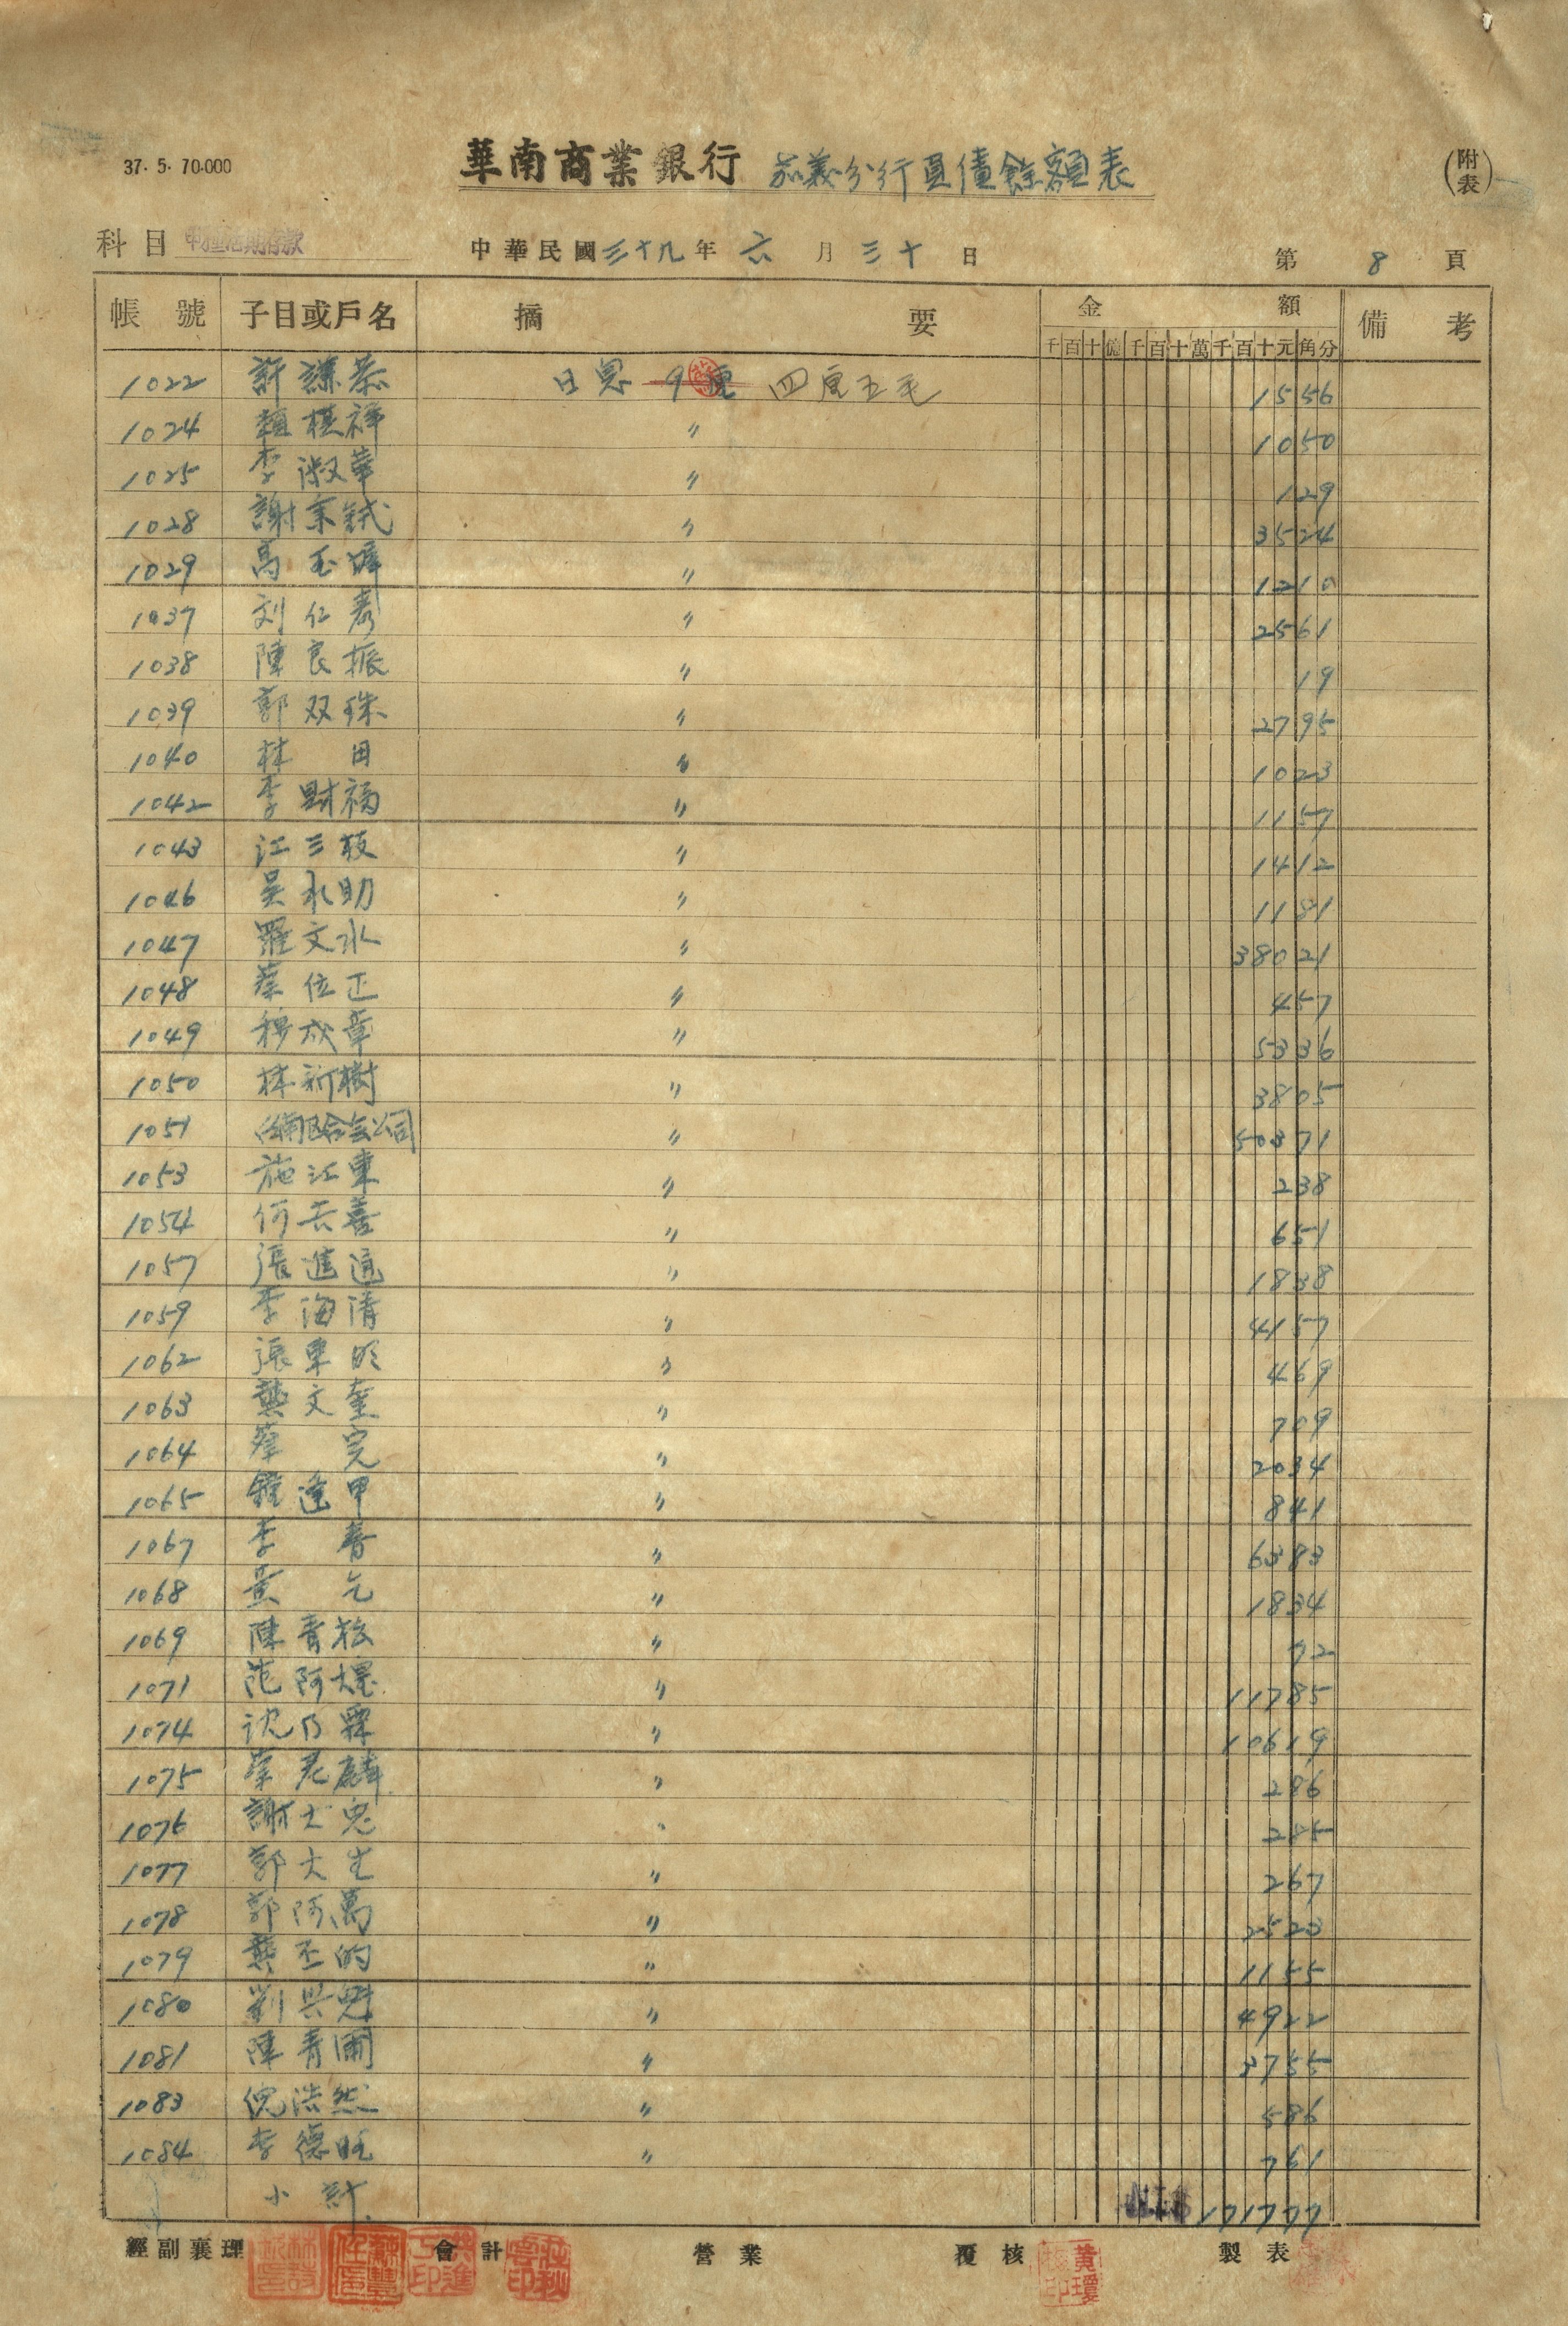 37.5.70.000
華南商業銀行 嘉義分行負債餘額表
(附表)
科目 甲種活期存款
中華民國三十九年六月三十日
第8頁
帳號 子目或戶名 摘要 金額 備考
千百十億千百十萬千百十元角分
1022 許 日息 四厘五毛 1556
1024 賴棋祥 〃 1050
1025 李淑華 〃 129
1028 謝 〃 3524
1029 高玉 〃 1210
1037 刘仁 〃 2561
1038 陳良振 〃 19
1039 郭双珠 〃 2795
1040 林田 〃 1023
1042 李財福 〃 1157
1043 江三枝 〃 1412
1046 吳永助 〃 1181
1047 羅文水 〃 38021
1048 蔡位正 〃 457
1049 穆成章 〃 5336
1050 林新樹 〃 3805
1051 公司 〃 50371
1053 施江東 〃 238
1054 何 善 〃 651
1057 張進通 〃 1838
1059 李海清 〃 4157
1062 張東明 〃 469
1063 龔文奎 〃 709
1064 蔡完 〃 2034
1065 鍾逢甲 〃 841
1067 李春 〃 6383
1068 黃乞 〃 1834
1069 陳青松 〃 72
1071 范阿 〃 11785
1074 沈乃霖 〃 10619
1075 蔡 麟 〃 286
1076 謝 285
1077 郭大生 〃 267
1078 郭阿萬 〃 2523
1079 龔丕的 〃 1155
1080 劉興魁 〃 4922
1081 陳青 〃 3755
1083 倪浩然 〃 586
1084 李德旺 〃 761
小計 171777
經副襄理 會計 營業 覆核 製表